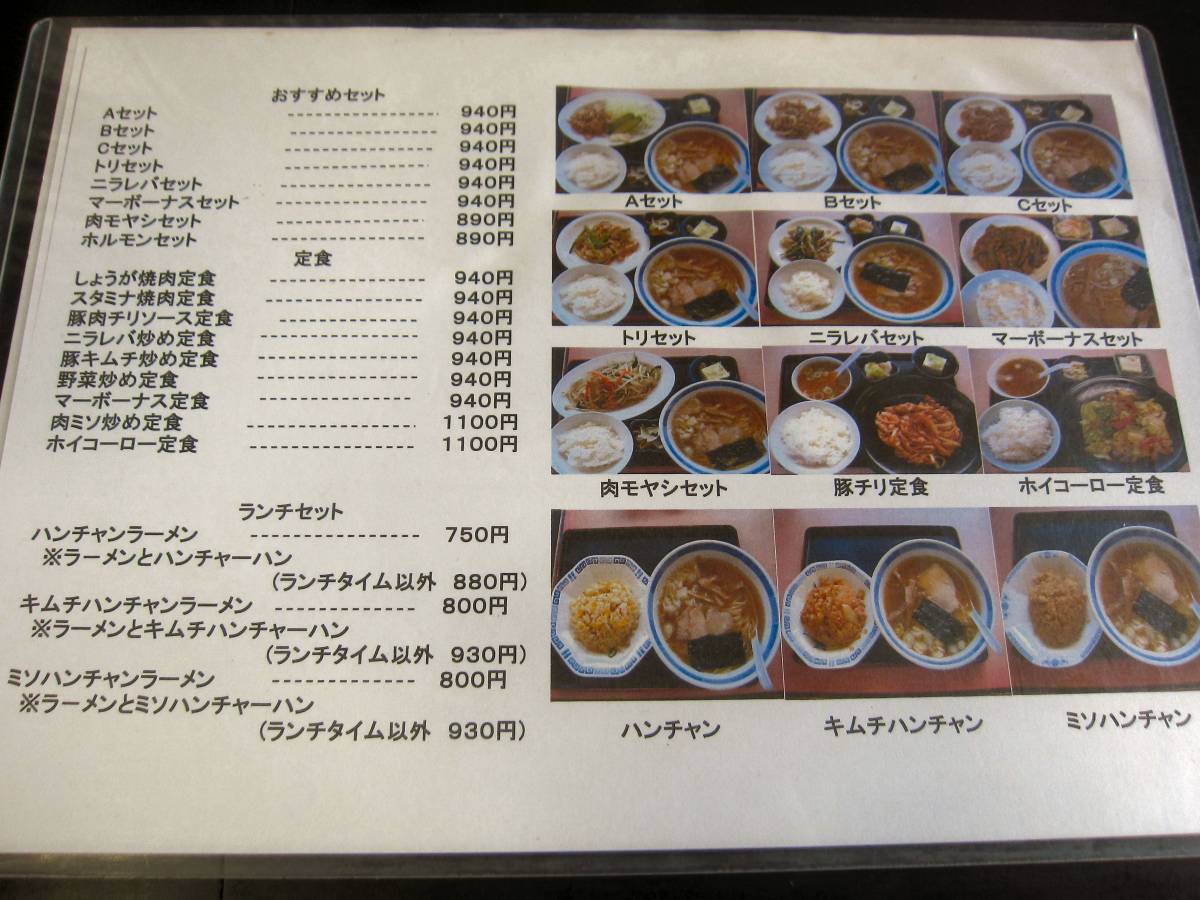 おすすめセット
Aセット ------------------ 940円
Bセット ------------------ 940円
Cセット ------------------ 940円
トリセット ------------------ 940円
ニラレバセット ------------------ 940円
マーボーナスセット ------------------ 940円
肉モヤシセット ------------------ 890円
ホルモンセット ------------------ 890円
定食
しょうが焼肉定食 ------------------ 940円
スタミナ焼肉定食 ------------------ 940円
豚肉チリソース定食 ---------------- 940円
ニラレバ炒め定食 ------------------ 940円
豚キムチ炒め定食 ------------------ 940円
野菜炒め定食 ------------------ 940円
マーボーナス定食 ------------------ 940円
肉ミソ炒め定食 ------------------- 1100円
ホイコーロー定食 ------------------ 1100円
ランチセット
ハンチャンラーメン ----------------- 750円
※ラーメンとハンチャーハン
(ランチタイム以外 880円)
キムチハンチャンラーメン -------------- 800円
※ラーメンとキムチハンチャーハン
(ランチタイム以外 930円)
ミソハンチャンラーメン -------------- 800円
※ラーメンとミソハンチャーハン
(ランチタイム以外 930円)
Aセット Bセット Cセット
トリセット ニラレバセット マーボーナスセット
肉モヤシセット 豚チリ定食 ホイコーロー定食
ハンチャン キムチハンチャン ミソハンチャン